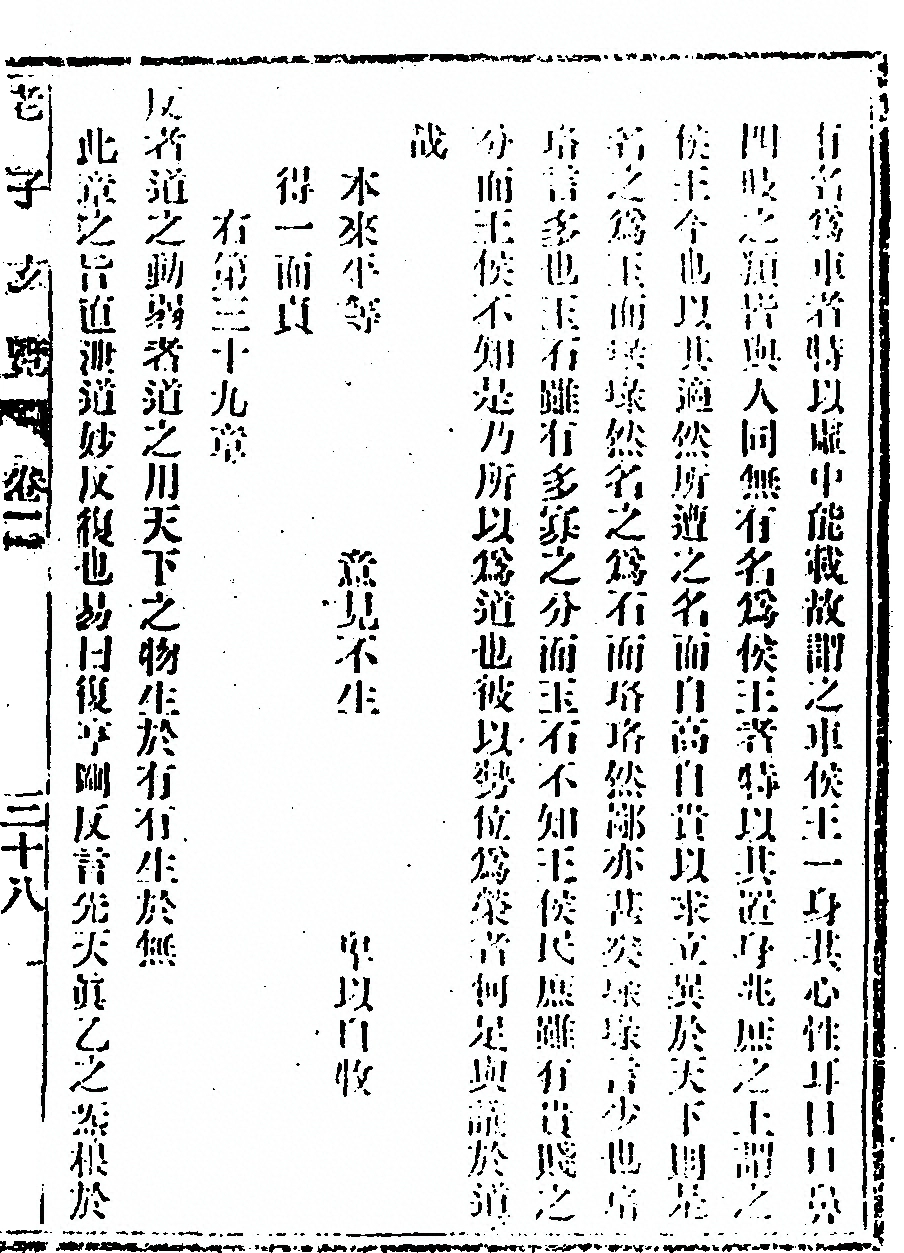 有名爲車者特以虛中能載故謂之車侯王一身其心性耳目口鼻
四肢之類皆與人同無有名爲侯王者特以其置身兆庶之上謂之
侯王个也以其適然所遭之名而自高自貴以求立異於天下則是
名之爲玉而琭琭然名之爲石而珞珞然鄙亦甚矣琭琭言少也珞
珞言多也玉石雖有多寡之分而玉石不知王侯民庶雖有貴賤之
分而王侯不知是乃所以爲道也彼以勢位爲榮者何足與議於道
哉
本來平等 意見不生 卑以自牧
得一而貞
右第三十九章
反者道之動弱者道之用天下之物生於有有生於無
此章之旨直泄道妙反復也易曰復亨剛反言先天眞乙之炁根於
老子 覽 卷二 三十八